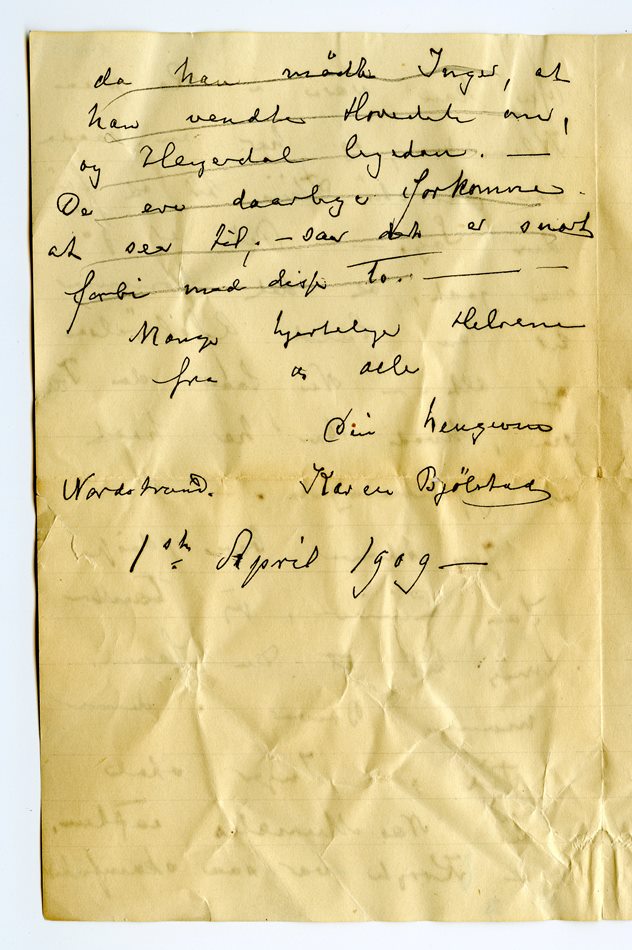 da han mødte Inger, at
han vendte Hovedet om,
og Heyerdal ligedan. —
De ere daarlige forkomne
at see til, — saa det er snart
forbi med disse To. —— —
Mange hjertelige Hilsene
fra os alle
Din hengivne
Nordstrand. Karen Bjölstad
1st April 1909 —